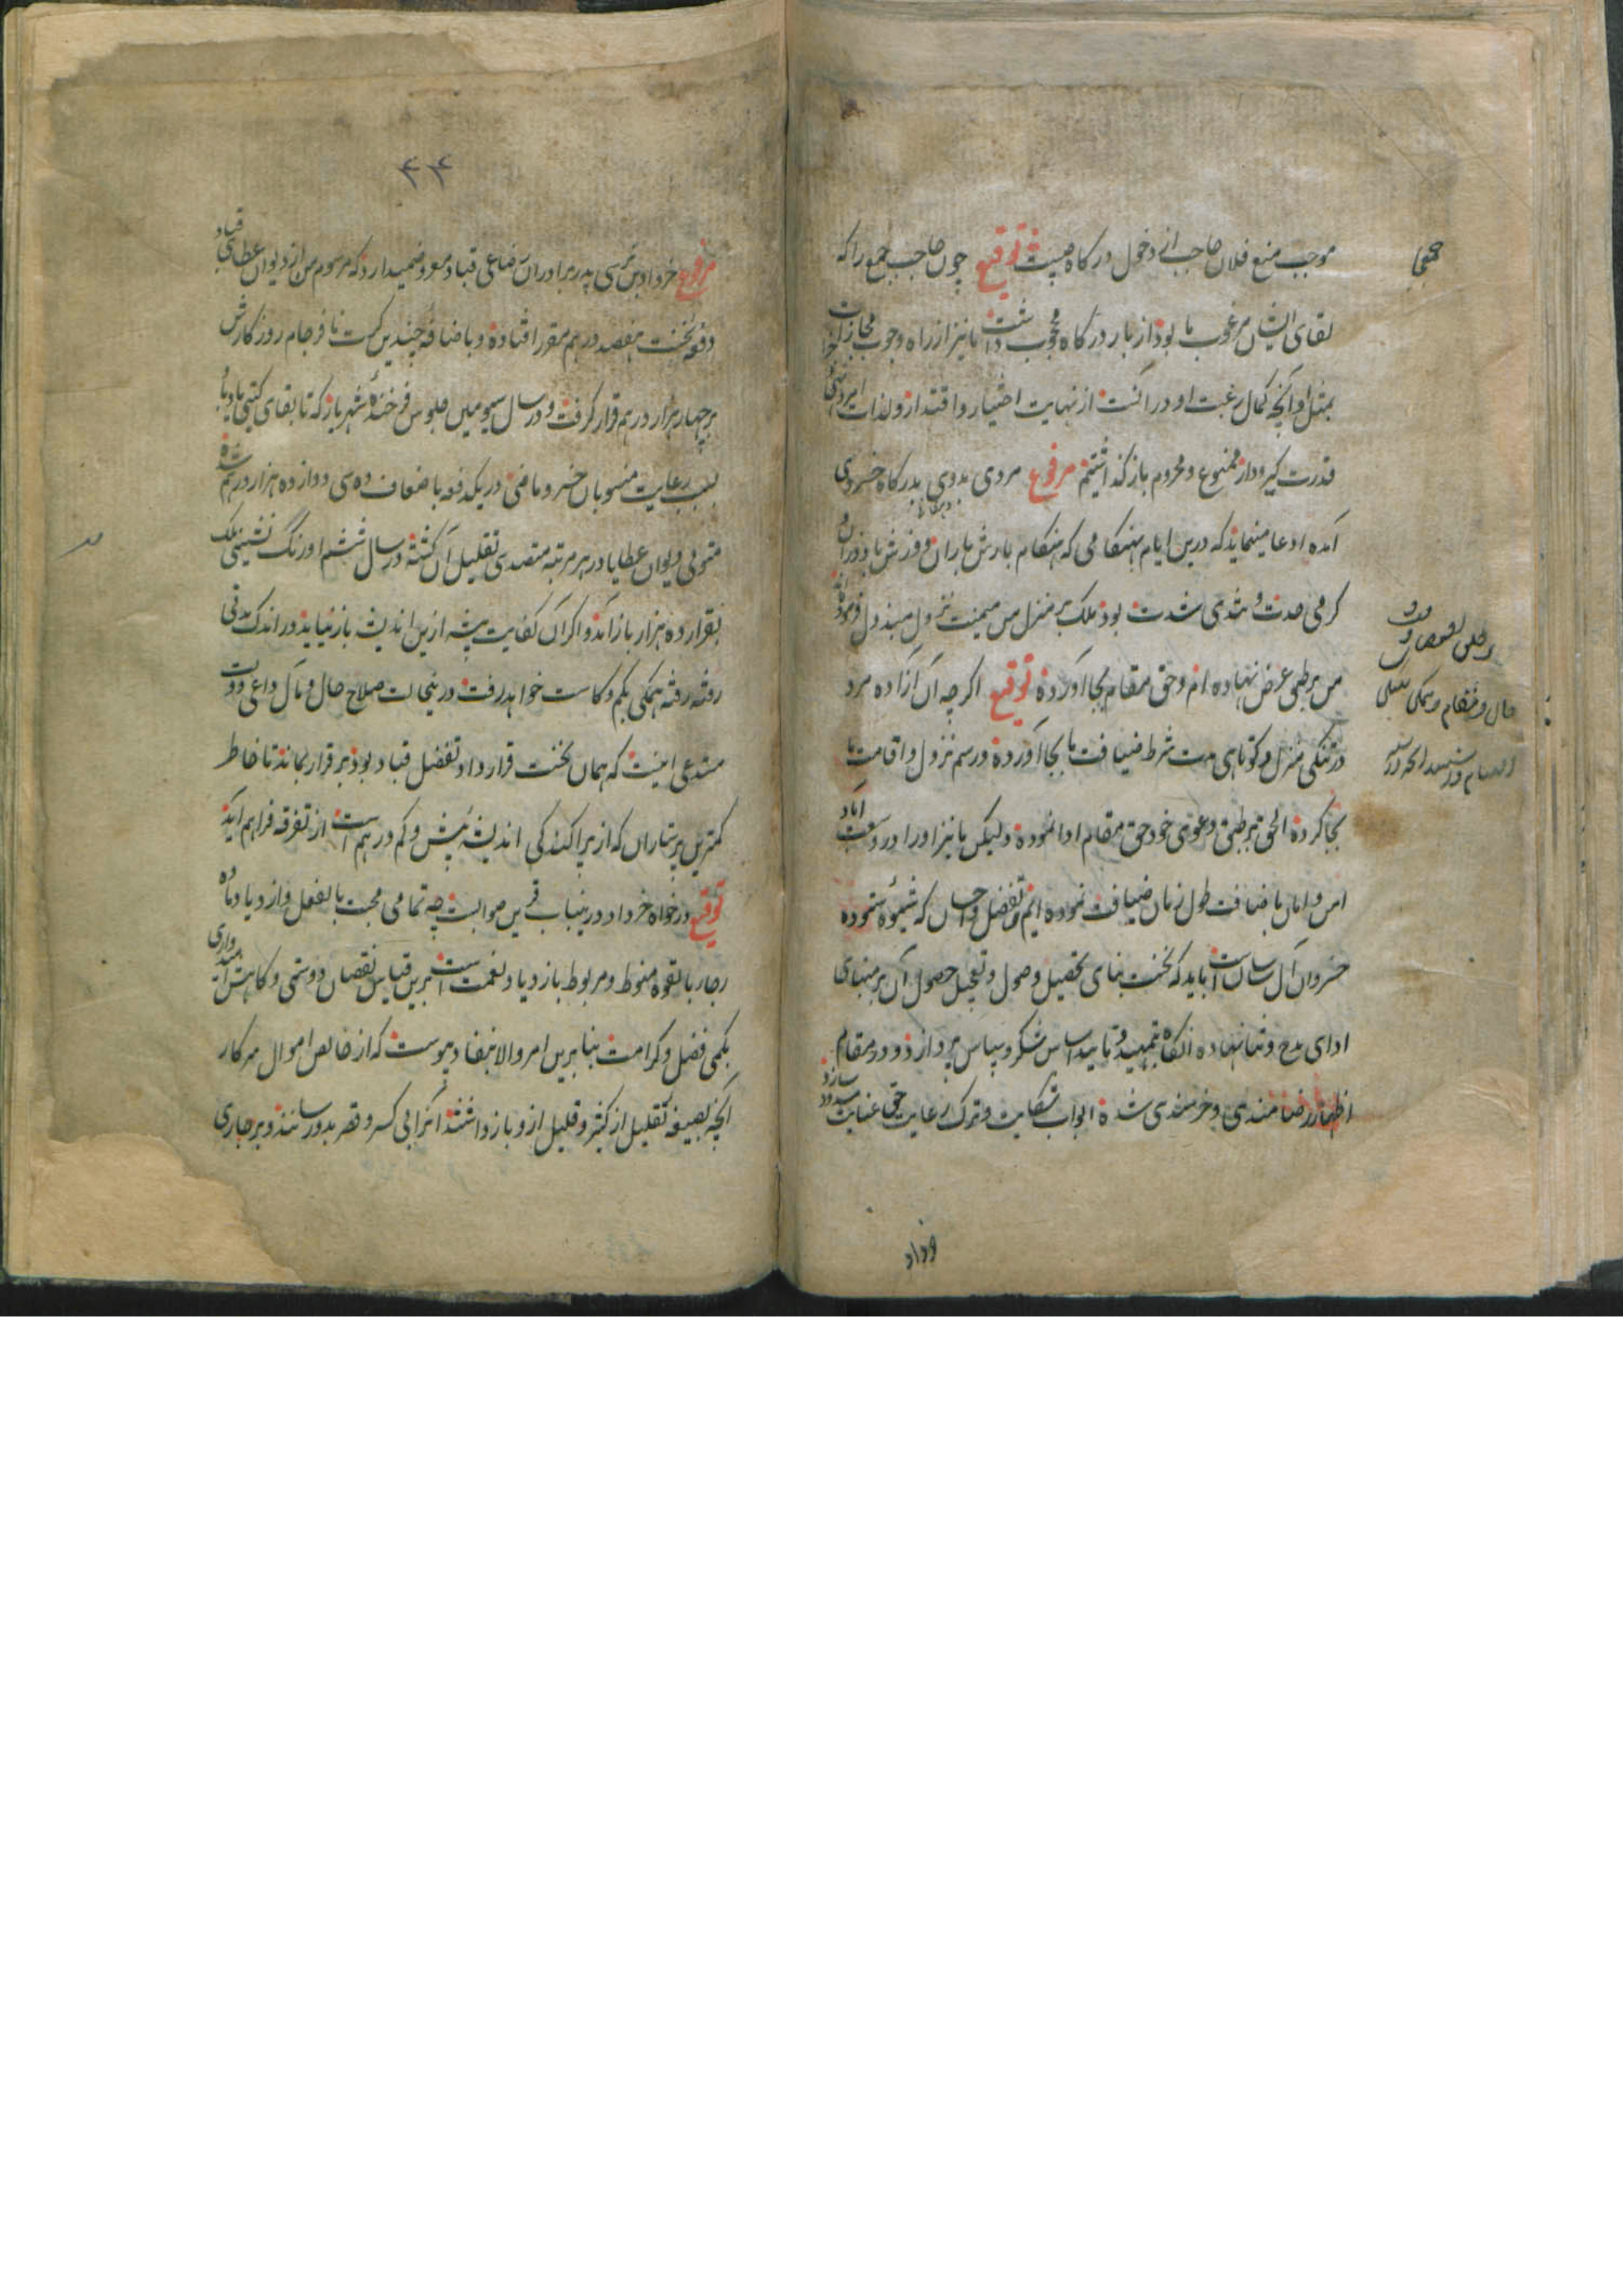 موجب منع فلان حاجب از دخول درگاه چیست توقیع چون حاجب جمع را که
لقای ایشان مرغوب ما بود از بار درگاه محجوب داشت ما نیز از راه وجوب مجازات
بمثل او آنچه کمال رغبت او در آنست از نهایت اختیار و اقتدار و لذات امر و نهی
قدرت گیرودار ممنوع و محروم باز گذاشتیم مرفوع مردی بدوی بدرگاه خسروی
آمده ادعا مینماید که درین ایام بهنگامی که هنگام بارش باران و وزش باد و زان
گرمی حدت و تندی شدت بود ملک بر منزل من میمنت نزول مبذول فرموده
من برطبق عرض نهاده ام و حق مقام بجا آورده توقیع اگرچه آن آزاده مرد
در تنگی منزل و کوتاهی مدت شرط ضیافت ما بجا آورده و رسم نزول و اقامت ما
بجا کرده الحق برطبق دعوی خود حق مقام ادا نموده ولیکن ما نیز او را در وسعت آباد
امن و امان باضافت طول زمان ضیافت نموده ایم و تفضل و احسان که شیوه ستوده
خسروان آل ساسانست باید که نخست بنای تحصیل وصول و تعجیل حصول آن بر مبنای
ادای مدح و ثنا نهاده آنگاه بتمهید و تایید اساس شکر و سپاس پردازد و در مقام
اظهار رضامندی و خرسندی شده ابواب شکایت و ترک رعایت حق عنایت مسدود سازد
و داد
۴۴
مرفوع خرداد بن نرسی پدر برادران رضاعی قباد معروض میدارد که مرسوم من از دیوان عطای قباد
دفعه نخست هفصد درهم مقرر افتاده و باضافه چندین کرت تا فرجام روزگارش
بر چهار هزار درهم قرار گرفت و در سال سیومین جلوس فرخنده شهریار که تا بقای گیتی باد
بسبب رعایت منسوبان خسرو ماضی در یکدفعه باضعاف ده سی دوازده هزار درهم شده
متولی دیوان عطایا در هر مرتبه متصدی تقلیل آن گشته در سال ششم اورنگ نشینی ملک
بقرار ده هزار باز آمد و اگر آن کفایت پیشه ازین اندیشه باز نیاید در اندک مدتی
رفته رفته همگی بکم و کاست خواهد رفت درینحالت صلاح حال و مآل داعی دولت
مستدعی اینست که همان نخست قرارداد تفضل قباد بود برقرار بماند تا خاطر
کمترین پرستاران که از پراکندگی اندیشه بیش و کم درهم است از تفرقه فراهم آید
توقیع درخواه خرداد درینباب قرین صوابست چه تمامی محبت بالفعل و ازدیاد ماده
رجا بالقوه منوط و مربوط بازدیاد نعمت است برین قیاس نقصان دوستی و کاهش امیدواری
بکمی فضل و کرامت بنا برین امر والا بنفاد پیوست که از خالص اموال سرکار
آنچه بصیغه تقلیل از کثیر و قلیل ازو باز داشتند آنرا بی کسر و قصر بدو رسانند و بر جاری